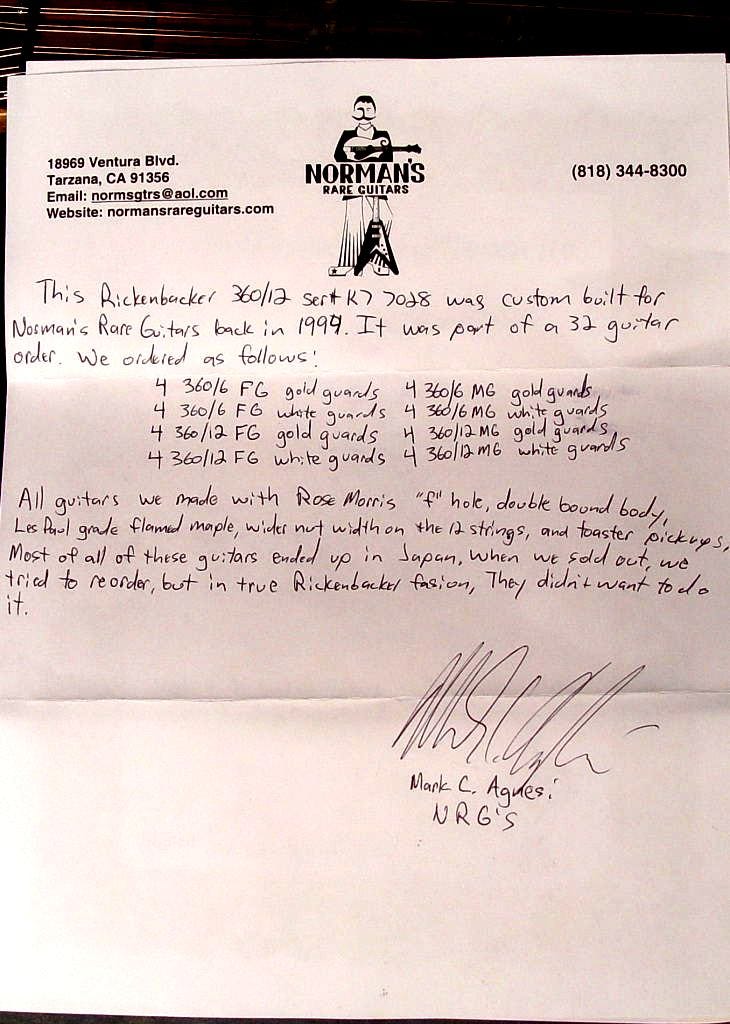 18969 Ventura Blvd.
Tarzana, CA 91356
Email: normsgtrs@aol.com
Website: normansrareguitars.com
NORMAN'S
RARE GUITARS
(818) 344-8300
This Rickenbacker 360/12 ser# K7 7028 was custom built for
Norman's Rare Guitars back in 1997. It was part of a 32 guitar
order. We ordered as follows:
4 360/6 FG gold guards 4 360/6 MG gold guards,
4 360/6 FG white guards 4 360/6 MG white guards
4 360/12 FG gold guards 4 360/12 MG gold guards,
4 360/12 FG white guards 4 360/12 MG white guards
All guitars we made with Rose Morris "f" hole, double bound body,
Les Paul grade flamed maple, wider nut width on the 12 strings, and toaster pickups,
Most of all of these guitars ended up in Japan, when we sold out, we
tried to reorder, but in true Rickenbacker fasion, They didn't want to do
it.
Mark C. Agnesi
NRG's